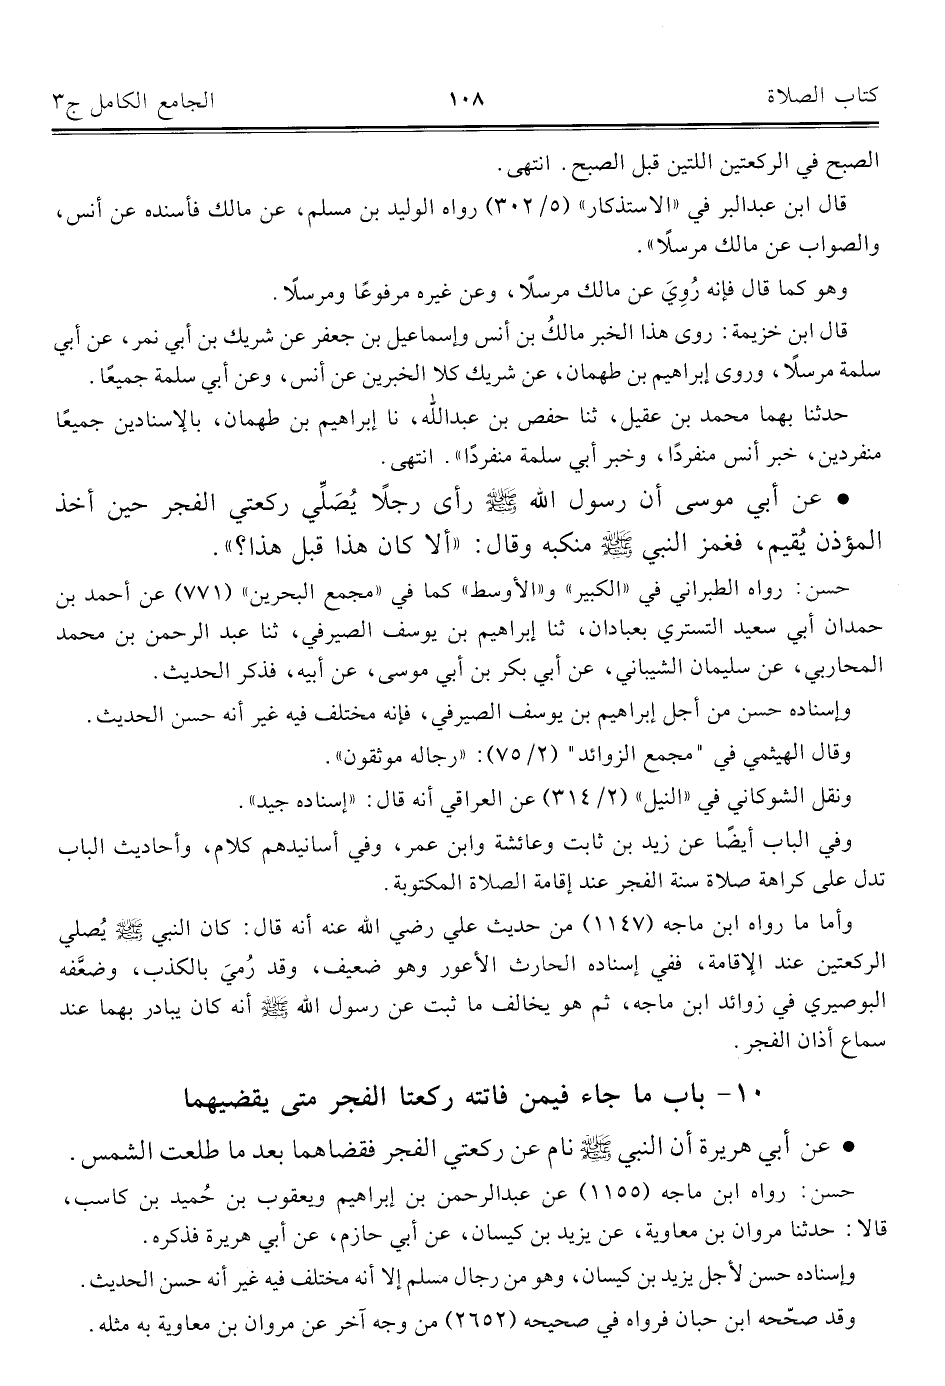 كتاب الصلاة ١٠٨ الجامع الكامل ج٣
الصبح في الركعتين اللتين قبل الصبح. انتهى.
قال ابن عبدالبر في «الاستذكار» (٥/ ٣٠٢) رواه الوليد بن مسلم، عن مالك فأسنده عن أنس،
والصواب عن مالك مرسلًا».
وهو كما قال فإنه رُوِيَ عن مالك مرسلًا، وعن غيره مرفوعًا ومرسلًا.
قال ابن خزيمة: روى هذا الخبر مالكُ بن أنس وإسماعيل بن جعفر عن شريك بن أبي نمر، عن أبي
سلمة مرسلًا، وروى إبراهيم بن طهمان، عن شريك كلا الخبرين عن أنس، وعن أبي سلمة جميعًا.
حدثنا بهما محمد بن عقيل، ثنا حفص بن عبدالله، نا إبراهيم بن طهمان، بالإسنادين جميعًا
منفردين، خبر أنس منفردًا، وخبر أبي سلمة منفردًا». انتهى.
• عن أبي موسى أن رسول الله ﷺ رأى رجلًا يُصَلِّي ركعتي الفجر حين أخذ
المؤذن يُقيم، فغمز النبي ﷺ منكبه وقال: «ألا كان هذا قبل هذا؟».
حسن: رواه الطبراني في «الكبير» و«الأوسط» كما في «مجمع البحرين» (٧٧١) عن أحمد بن
حمدان أبي سعيد التستري بعبادان، ثنا إبراهيم بن يوسف الصيرفي، ثنا عبد الرحمن بن محمد
المحاربي، عن سليمان الشيباني، عن أبي بكر بن أبي موسى، عن أبيه، فذكر الحديث.
وإسناده حسن من أجل إبراهيم بن يوسف الصيرفي، فإنه مختلف فيه غير أنه حسن الحديث.
وقال الهيثمي في "مجمع الزوائد" (٢/ ٧٥): «رجاله موثقون».
ونقل الشوكاني في «النيل» (٢/ ٣١٤) عن العراقي أنه قال: «إسناده جيد».
وفي الباب أيضًا عن زيد بن ثابت وعائشة وابن عمر، وفي أسانيدهم كلام، وأحاديث الباب
تدل على كراهة صلاة سنة الفجر عند إقامة الصلاة المكتوبة.
وأما ما رواه ابن ماجه (١١٤٧) من حديث علي رضي الله عنه أنه قال: كان النبي ﷺ يُصلي
الركعتين عند الإقامة، ففي إسناده الحارث الأعور وهو ضعيف، وقد رُميَ بالكذب، وضعَّفه
البوصيري في زوائد ابن ماجه، ثم هو يخالف ما ثبت عن رسول الله ﷺ أنه كان يبادر بهما عند
سماع أذان الفجر.
١٠- باب ما جاء فيمن فاتته ركعتا الفجر متى يقضيهما
• عن أبي هريرة أن النبي ﷺ نام عن ركعتي الفجر فقضاهما بعد ما طلعت الشمس.
حسن: رواه ابن ماجه (١١٥٥) عن عبدالرحمن بن إبراهيم ويعقوب بن حُميد بن كاسب،
قالا: حدثنا مروان بن معاوية، عن يزيد بن كيسان، عن أبي حازم، عن أبي هريرة فذكره.
وإسناده حسن لأجل يزيد بن كيسان، وهو من رجال مسلم إلا أنه مختلف فيه غير أنه حسن الحديث.
وقد صحّحه ابن حبان فرواه في صحيحه (٢٦٥٢) من وجه آخر عن مروان بن معاوية به مثله.